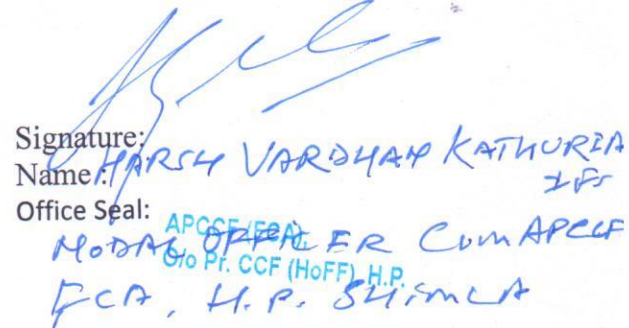 Signature:
Name: HARSH VARDHAN KATHURIA
IFS
Office Seal:
APCCF (FCA),
O/o Pr. CCF (HoFF), H.P.
NODAL OFFICER Cum APCCF
FCA, H.P. SHIMLA